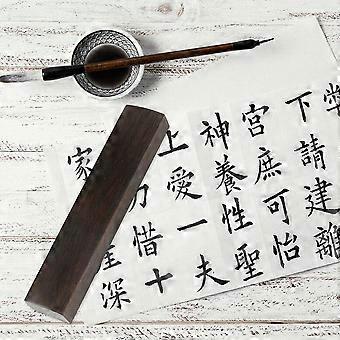 下請建離
宮庶可怡
神養性聖
上愛一夫
惜十
家
深